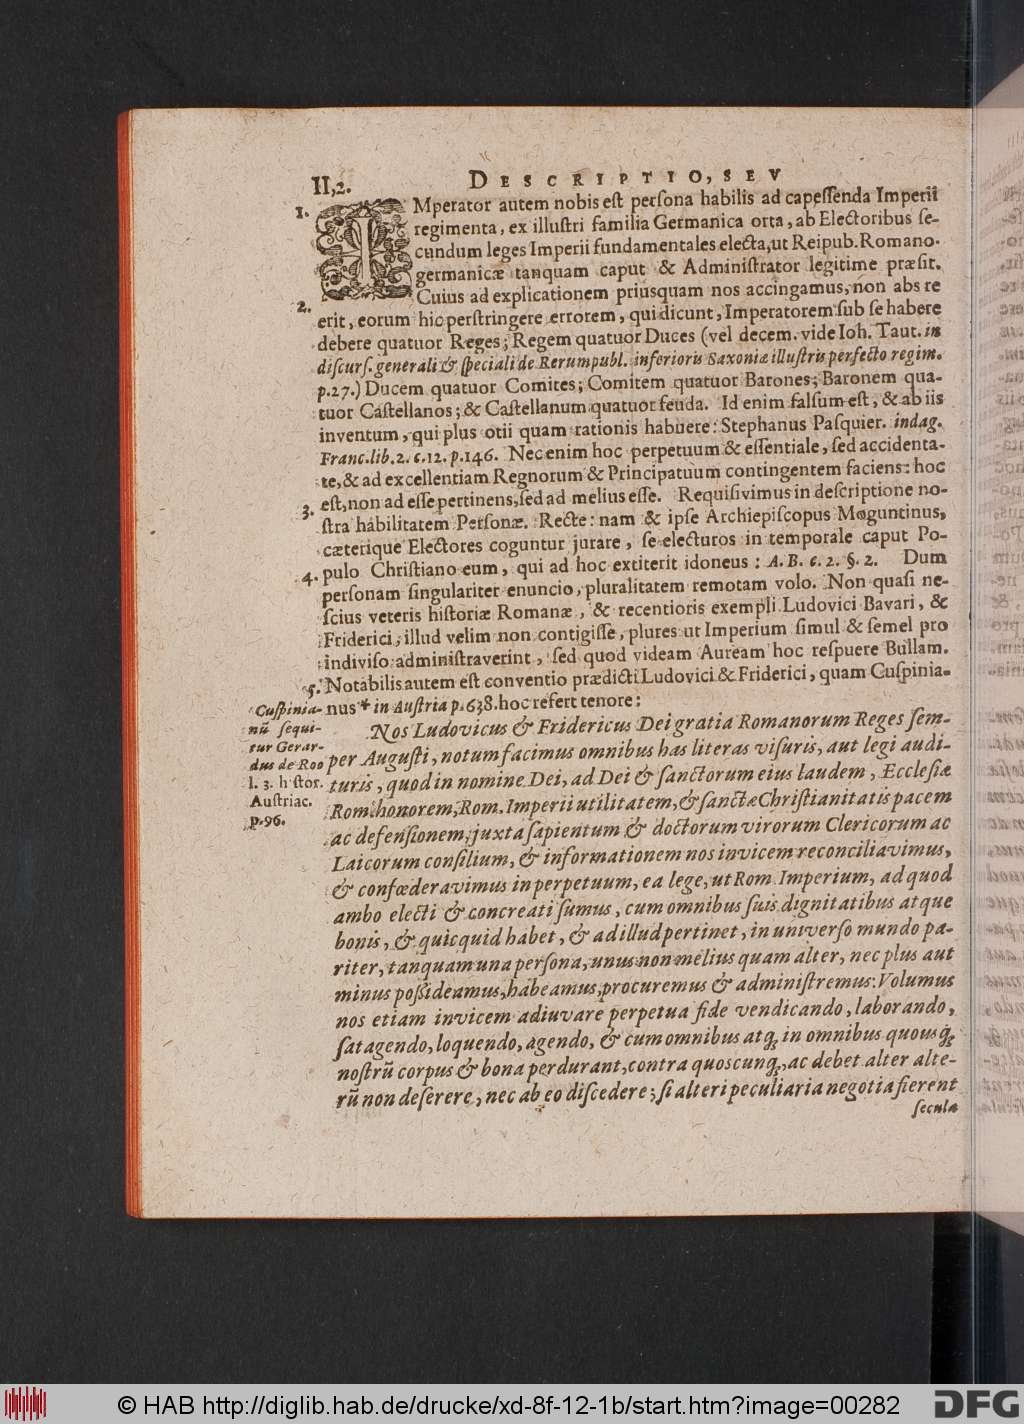 II,2.
DESCRIPTIO, SEV
1. IMperator autem nobis eſt perſona habilis ad capeſſenda Imperii
regimenta, ex illuſtri familia Germanica orta, ab Electoribus ſe-
cundum leges Imperii fundamentales electa, ut Reipub. Romano-
germanicæ tanquam caput & Adminiſtrator legitime præſit.
2. Cuius ad explicationem priusquam nos accingamus, non abs re
erit, eorum hic perſtringere errorem, qui dicunt, Imperatorem ſub ſe habere
debere quatuor Reges; Regem quatuor Duces (vel decem. vide Ioh. Taut. in
diſcurſ. generali & ſpeciali de Rerumpubl. inferioris Saxoniæ illuſtris perfecto regim.
p.27.) Ducem quatuor Comites; Comitem quatuor Barones; Baronem qua-
tuor Caſtellanos; & Caſtellanum quatuor feuda. Id enim falſum eſt, & ab iis
inventum, qui plus otii quam rationis habuere: Stephanus Paſquier. indag.
Franc. lib. 2. c. 12. p. 146. Nec enim hoc perpetuum & eſſentiale, ſed accidenta-
te, & ad excellentiam Regnorum & Principatuum contingentem faciens: hoc
eſt, non ad eſſe pertinens, ſed ad melius eſſe. Requiſivimus in deſcriptione no-
3. ſtra habilitatem Perſonæ. Recte: nam & ipſe Archiepiſcopus Moguntinus,
cæterique Electores coguntur jurare, ſe electuros in temporale caput Po-
pulo Chriſtiano eum, qui ad hoc extiterit idoneus: A. B. c. 2. §. 2. Dum
4. perſonam ſingulariter enuncio, pluralitatem remotam volo. Non quaſi ne-
ſcius veteris hiſtoriæ Romanæ, & recentioris exempli Ludovici Bavari, &
Friderici, illud velim non contigiſſe, plures ut Imperium ſimul & ſemel pro
indiviſo adminiſtraverint, ſed quod videam Auream hoc reſpuere Bullam.
5. Notabilis autem eſt conventio prædicti Ludovici & Friderici, quam Cuſpinia-
nus * in Auſtria p. 638. hoc refert tenore:
Cuſpinia-
nũ ſequi-
tur Gerar-
dus de Roo
l. 3. hſtor.
Auſtriac.
p. 96.
Nos Ludovicus & Fridericus Dei gratia Romanorum Reges ſem-
per Auguſti, notum facimus omnibus has literas viſuris, aut legi audi-
turis, quod in nomine Dei, ad Dei & ſanctorum eius laudem, Eccleſiæ
Rom. honorem, Rom. Imperii utilitatem, & ſanctæ Chriſtianitatis pacem
ac defenſionem, juxta ſapientum & doctorum virorum Clericorum ac
Laicorum conſilium, & informationem nos invicem reconciliavimus,
& confœderavimus in perpetuum, ea lege, ut Rom. Imperium, ad quod
ambo electi & concreati ſumus, cum omnibus ſuis dignitatibus atque
bonis, & quicquid habet, & ad illud pertinet, in univerſo mundo pa-
riter, tanquam una perſona, unus non melius quam alter, nec plus aut
minus poſſideamus, habeamus, procuremus & adminiſtremus: Volumus
nos etiam invicem adiuvare perpetua fide vendicando, laborando,
ſatagendo, loquendo, agendo, & cum omnibus atq; in omnibus quousq;
noſtrũ corpus & bona perdurant, contra quoscunq;, ac debet alter alte-
rũ non deſerere, nec ab eo diſcedere; ſi alteri peculiaria negotia fierent
ſecula
© HAB http://diglib.hab.de/drucke/xd-8f-12-1b/start.htm?image=00282
DFG